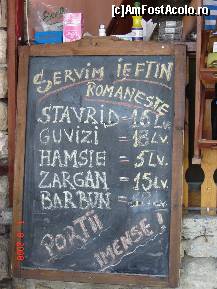 (c)AmFostAcolo.ro
SERVIM IEFTIN
ROMANESTE
STAVRID = 15 LV.
GUVIZI = 18 LV.
HAMSIE = 5 LV.
ZARGAN = 15 LV.
BARBUN = LV.
PORTII
IMENSE!